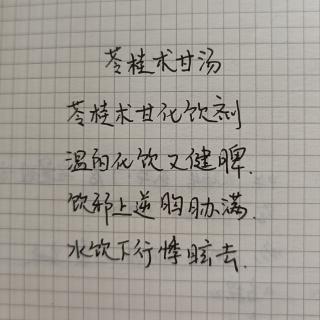 苓桂术甘汤
苓桂术甘化饮剂
温阳化饮又健脾.
饮邪上逆胸胁满.
水饮下行悸眩去.